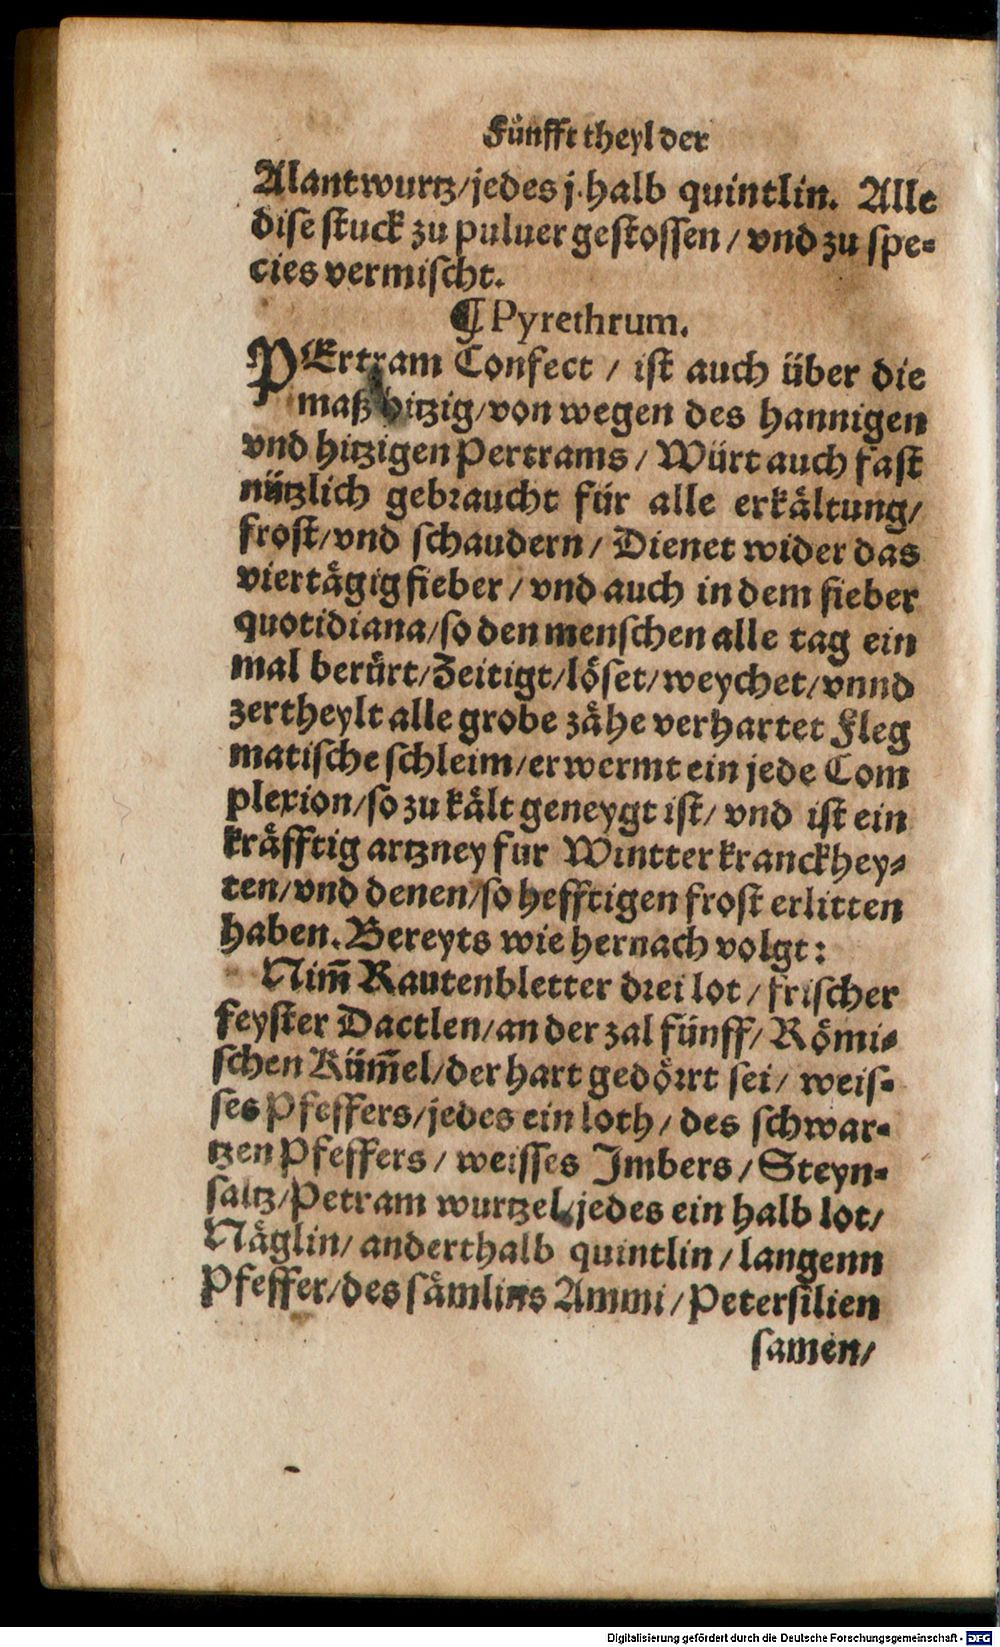 Fünfft theyl der
Alantwurtz/jedes j. halb quintlin. Alle
dise stuck zu puluer gestossen / vnd zu spe⸗
cies vermischt.
¶ Pyrethrum.
PErtram Confect / ist auch über die
maß hitzig/von wegen des hannigen
vnd hitzigen Pertrams / Würt auch fast
nützlich gebraucht für alle erkåltung/
frost/vnd schaudern / Dienet wider das
viertågig fieber / vnd auch in dem fieber
quotidiana/so den menschen alle tag ein
mal berürt/Zeitigt/lôset/weychet/vnnd
zertheylt alle grobe zåhe verhartet Fleg
matische schleim/erwermt ein jede Com
plexion/so zu kålt geneygt ist/ vnd ist ein
kråfftig artzney fur Wintter kranckhey⸗
ten/vnd denen/so hefftigen frost erlitten
haben. Bereyts wie hernach volgt:
Nim̃ Rautenbletter drei lot / frischer
feyster Dactlen/an der zal fünff/ Rômi⸗
schen Küm̃el/der hart gedôrrt sei/ weis⸗
ses Pfeffers/jedes ein loth / des schwar⸗
tzen Pfeffers / weisses Imbers / Steyn⸗
saltz/Petram wurtzel/jedes ein halb lot/
Någlin/ anderthalb quintlin / langenn
Pfeffer/des såmlins Ammi / Petersilien
samen/
Digitalisierung gefördert durch die Deutsche Forschungsgemeinschaft - DFG